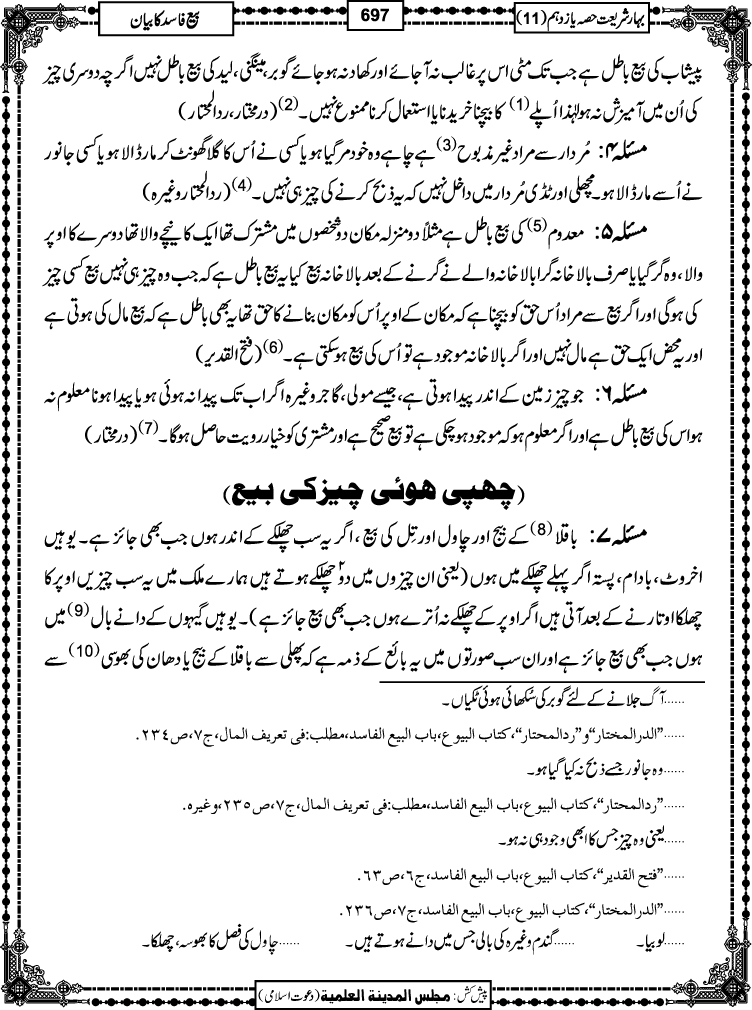 بہار شریعت حصہ یازدہم (11)
697
بیع فاسد کا بیان
پیشاب کی بیع باطل ہے جب تک مٹی اس پر غالب نہ آجائے اور کھاد نہ ہو جائے گوبر، مینگنی، لید کی بیع باطل نہیں اگرچہ دوسری چیز
کی اُن میں آمیزش نہ ہو لہٰذا اُپلے (1) کا بیچنا خریدنا یا استعمال کرنا ممنوع نہیں۔ (2) (درمختار، ردالمحتار)
مسئلہ ۴: مُردار سے مراد غیر مذبوح (3) ہے چاہے وہ خود مر گیا ہو یا کسی نے اُس کا گلا گھونٹ کر مار ڈالا ہو یا کسی جانور
نے اُسے مار ڈالا ہو۔ مچھلی اور ٹڈی مُردار میں داخل نہیں کہ یہ ذبح کرنے کی چیز ہی نہیں۔ (4) (ردالمحتار وغیرہ)
مسئلہ ۵: معدوم (5) کی بیع باطل ہے مثلاً دو منزلہ مکان دو شخصوں میں مشترک تھا ایک کا نیچے والا تھا دوسرے کا اوپر
والا، وہ گر گیا یا صرف بالا خانہ گرا بالا خانہ والے نے گرنے کے بعد بالا خانہ بیع کیا یہ بیع باطل ہے کہ جب وہ چیز ہی نہیں بیع کسی چیز
کی ہوگی اور اگر بیع سے مراد اُس حق کو بیچنا ہے کہ مکان کے اوپر اُس کو مکان بنانے کا حق تھا یہ بھی باطل ہے کہ بیع مال کی ہوتی ہے
اور یہ محض ایک حق ہے مال نہیں اور اگر بالا خانہ موجود ہے تو اُس کی بیع ہو سکتی ہے۔ (6) (فتح القدیر)
مسئلہ ۶: جو چیز زمین کے اندر پیدا ہوتی ہے، جیسے مولی، گاجر وغیرہ اگر اب تک پیدا نہ ہوئی ہو یا پیدا ہونا معلوم نہ
ہو اس کی بیع باطل ہے اور اگر معلوم ہو کہ موجود ہو چکی ہے تو بیع صحیح ہے اور مشتری کو خیار رویت حاصل ہوگا۔ (7) (درمختار)
(چھپی ہوئی چیز کی بیع)
مسئلہ ۷: باقلا (8) کے بیج اور چاول اور تِل کی بیع، اگر یہ سب چھلکے کے اندر ہوں جب بھی جائز ہے۔ یوہیں
اخروٹ، بادام، پستہ اگر پہلے چھلکے میں ہوں (یعنی ان چیزوں میں دو۲ چھلکے ہوتے ہیں ہمارے ملک میں یہ سب چیزیں اوپر کا
چھلکا اوتارنے کے بعد آتی ہیں اگر اوپر کے چھلکے نہ اُترے ہوں جب بھی بیع جائز ہے)۔ یوہیں گیہوں کے دانے بال (9) میں
ہوں جب بھی بیع جائز ہے اور ان سب صورتوں میں یہ بائع کے ذمہ ہے کہ پھلی سے باقلا کے بیج یا دھان کی بھوسی (10) سے
......آگ جلانے کے لئے گوبر کی سُکھائی ہوئی ٹکیاں۔
......”الدرالمختار“ و ”ردالمحتار“، کتاب البیوع، باب البیع الفاسد، مطلب: فی تعریف المال، ج۷، ص۲۳۴.
......وہ جانور جسے ذبح نہ کیا گیا ہو۔
......”ردالمحتار“، کتاب البیوع، باب البیع الفاسد، مطلب: فی تعریف المال، ج۷، ص۲۳۵، وغیرہ.
......یعنی وہ چیز جس کا ابھی وجود ہی نہ ہو۔
......”فتح القدیر“، کتاب البیوع، باب البیع الفاسد، ج۶، ص۶۳.
......”الدرالمختار“، کتاب البیوع، باب البیع الفاسد، ج۷، ص۲۳۶.
......لوبیا۔ ......گندم وغیرہ کی بالی جس میں دانے ہوتے ہیں۔ ......چاول کی فصل کا بھوسہ، چھلکا۔
پیش کش: مجلس المدینۃ العلمیۃ (دعوت اسلامی)